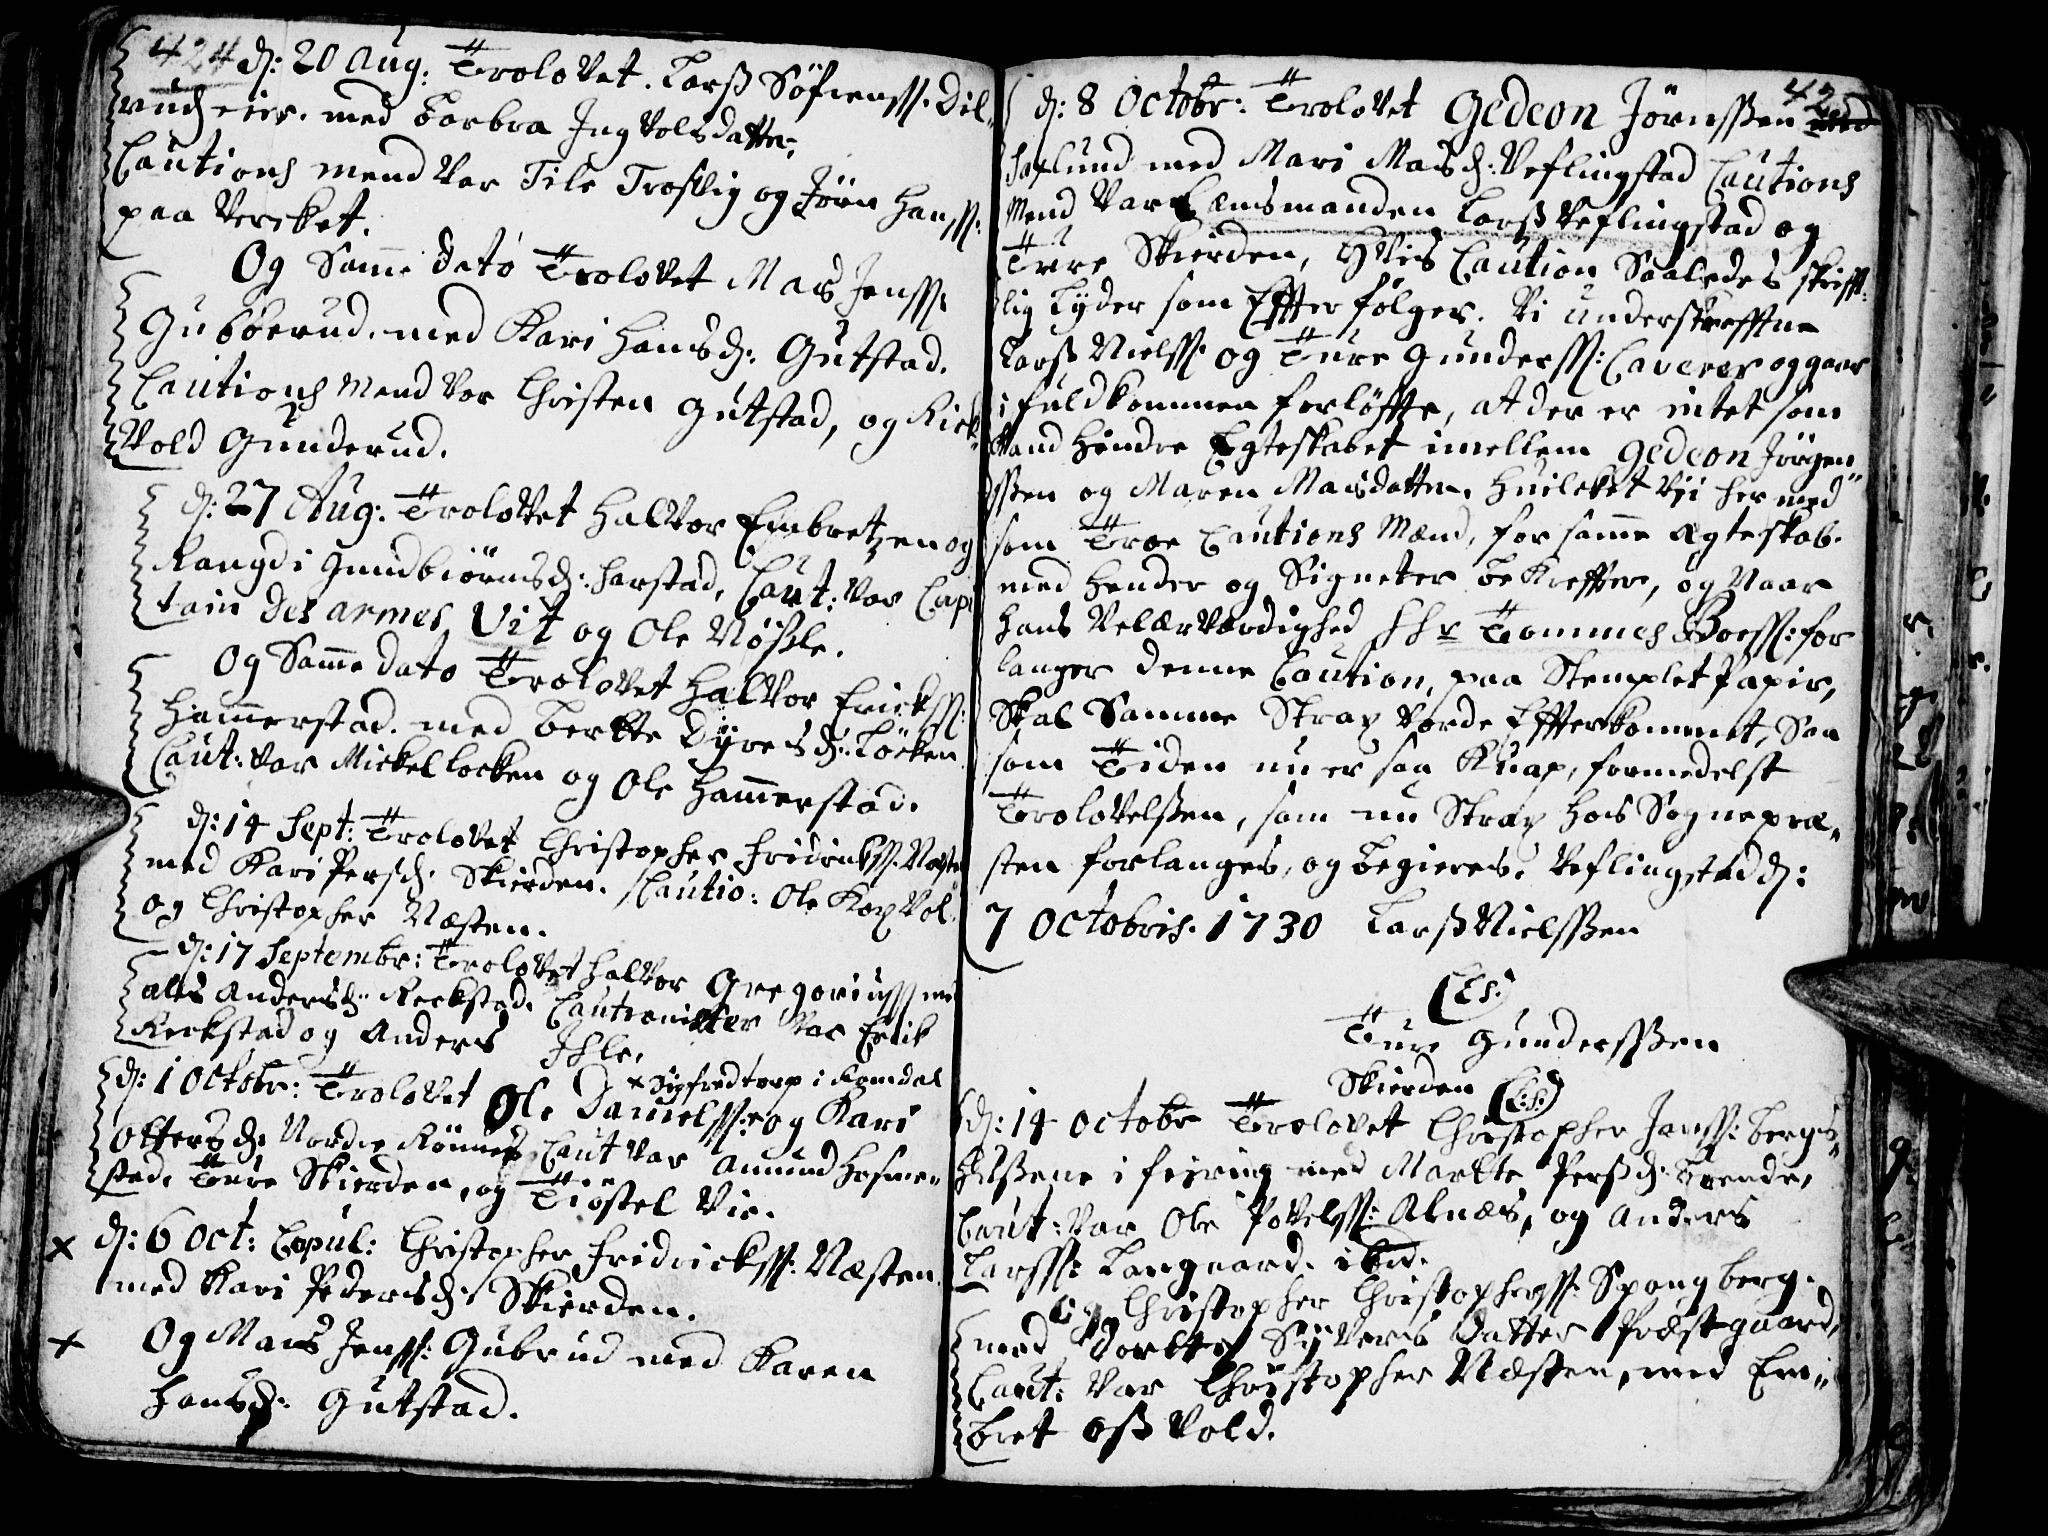 424 d: 20 Aug: Trolovet. Larss Söfrenss. Dil-
rud eier. med Barbra Ingvolsdatter,
Cautions mend var Tile Trostig og Jörn Hanss:
paa Vercket.
Og Samme dato Trolovet Mads Jenss:
Guböerud. med Kari Hansd: Gutstad.
Cautions Mend var Christen Gutstad, og Rick-
Vold Gunderud.
d: 27 Aug: Trolovet Halvor Embretzen og
Rangdi Gundbiörnsd: Harstad, Caut: var Capi
tain des armes Vit og Ole Nössle.
Og Samme dato Trolovet Halvor Ericks:
Hammerstad. med Berthe Dyresd: Löcken.
Caut: var Mickel locken og Ole Hammerstad.
d: 14 Sept: Trolovet Christopher Fridricks: Næsten
med Kari Persd: Skierden. Cautio: Ole Kaxvol.
og Christopher Næsten.
d: 17 Septembr: Trolovet Halvor Gregoriuss me
Andersd: Reckstad. Cautionister var Erik
Reckstad og Anders Ihle.
d: 1 Octobr: Trolovet Ole Danielss: og Kari
× Sigfredtorp i Romdal
Ottersd: Nordre Rönnes Caut var Amund Hofme-
sted. Ture Skierden, og Tiostel Vie.
× d: 6 Oct: Copul: Christopher Fridrickss: Næsten.
med Kari Pedersd: Skierden.
× Og Mads Jenss: Gubrud med Karen
Hansd: Gutstad.
42
d: 8 Octobr: Trolovet Gedeon Jörnssen
Haflund med Mari Madsd: Veflingstad Cautions
Mend Var Lensmanden Larss Veflingstad og
Ture Skierden, Hvis Caution Saaledes skrifft-
lig Lyder som Effter fölger. Vi underskreffne
Larss Nielss: og Ture Gunderss: Caverer og gaar
i fuldkommen forlöffte, at der er intet som
Kand hindre Egteskabet imellem Gedeon Jörgen-
ssen og Maren Madsdatter, Huilcket vii her med
som Troe Cautions Mænd, for samme Ægteskab.
med Hender og Signeter bekreffter, og Naar
Hans Velærværdighed Hr Tommes Boess: for
langer denne Caution, paa Stemplet Papir,
Skal Samme Strax vorde Effterkommet, Saa
som Tiden nu er saa Knap, formedelst
Trolovelssen, som nu Strax hos Sognepræ-
sten forlanges, og begieres. Veflingstad d:
7 Octobris. 1730 Larss Nielssen
(LS:)
Ture Gunderssen
Skierden (L:S:)
d: 14 Octobr Trolovet Christopher Janss: Bergs-
Hussene i Feiring med Marthe Persd: Trende,
Caut: Var Ole Povelss: Alnæs, og Anders
Larss: Langnard. ibid.
Og Christopher Christopherss: Spongberg.
med Dorthe Syvers Datter Præstgaard,
Caut: Var Christopher Næsten, med Em-
bret Oss Vold.